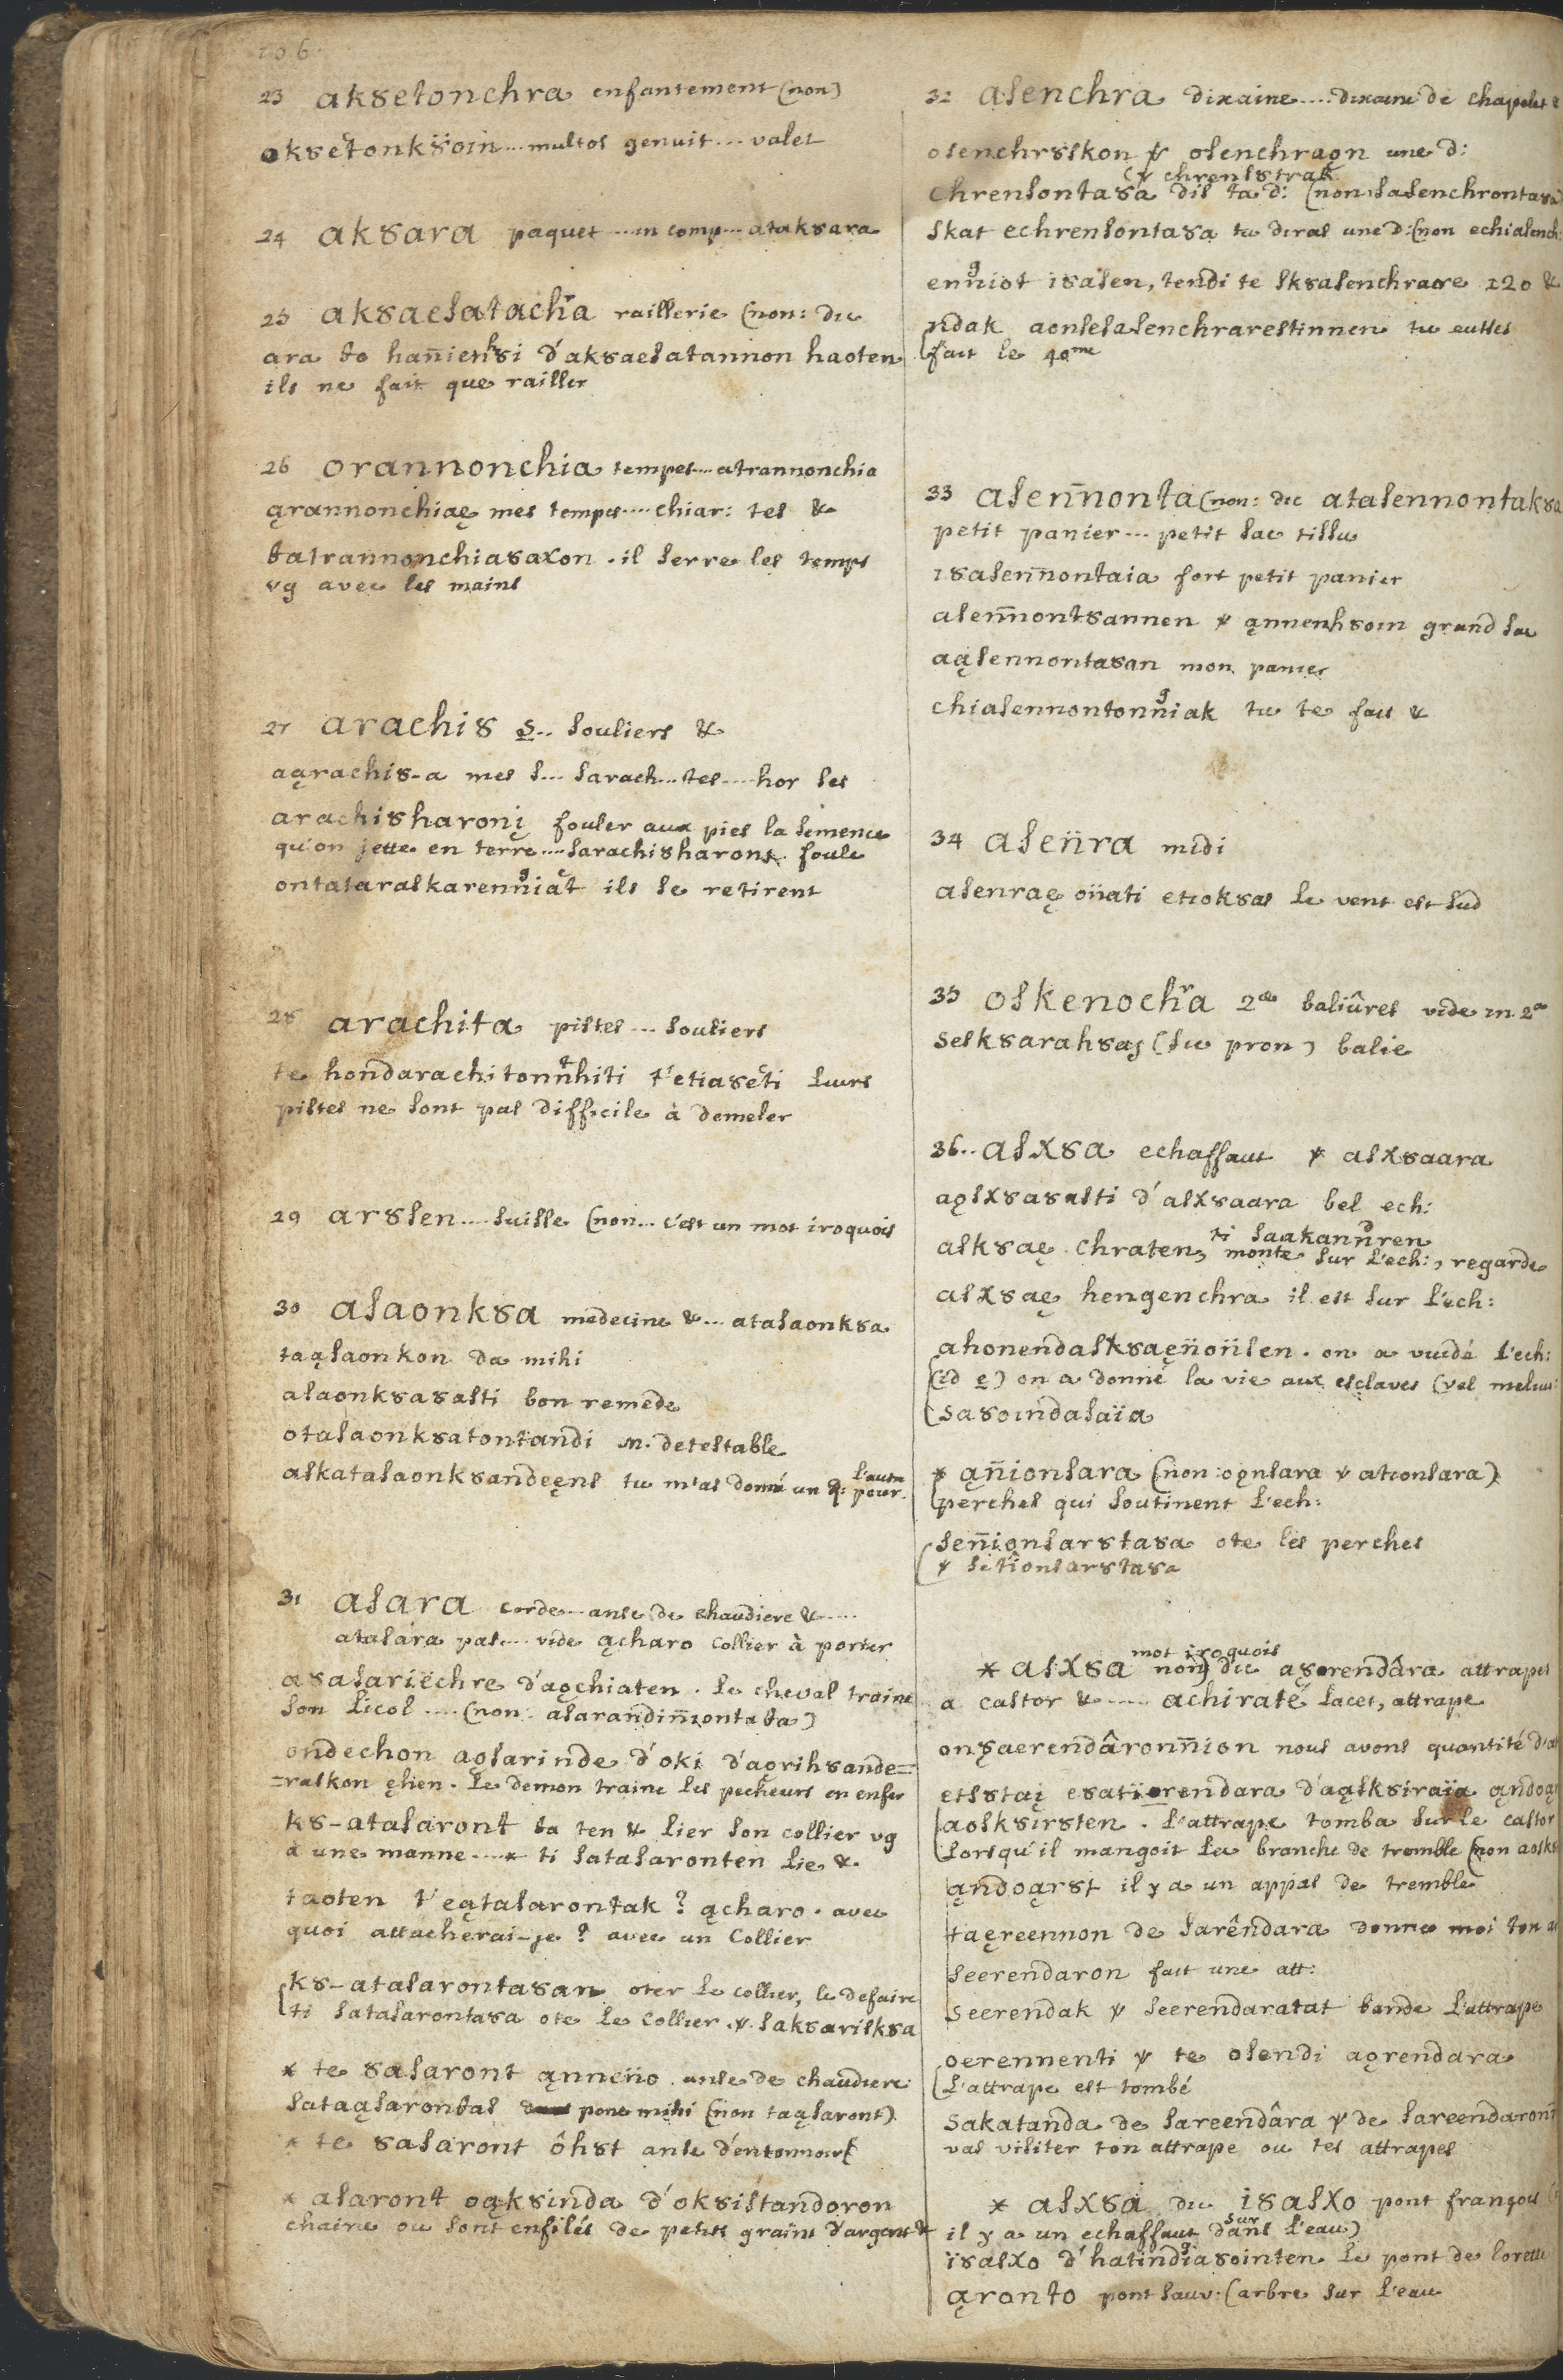 106.
23 akȣetonchra enfantement (non)
okȣetonkȣoin... multos genuit... valet
24 akȣara paquet .... in comp... atakȣara
25 akȣaesatachra raillerie (non: dic
ara to hanienkȣi d'akȣaesatannon haoten
ils ne fait que railler
26 orannonchia tempes.... atrannonchia
ąrannonchiaę mes tempes.... chiar: tes &
tatrannonchiaȣaxon . il serre les temps
vg avec les mains
27 arachiȣ s.. souliers &
aąrachiȣ-a mes s.... sarach... tes.... hor ses
arachiȣharonį fouler aux pies la semence
qu'on jette en terre.... sarachiȣharonx foule
ontataraskarenniat ils se retirent
28 arachita pistes.... souliers
te hondarachitonnhiti t'etiaȣeti leurs
pistes ne sont pas difficile à demeler
29 arȣsen.... suisse (non... c'est un mot iroquois
30 asaonkȣa medecine &... atasaonkȣa
taąsaonkon da mihi
asaonkȣaȣasti bon remede
otasaonkȣatontandi m. detestable
askatasaonkȣandeęns tu m'as donné un q: pour l'autre
31 asara corde... anse de chaudiere &.....
atasara pas.... vide ącharo collier à porter
aȣasariëchre d'aochiaten . le cheval traine
son licol.... (non: asarandinnontata)
ondechon aosarinde d'oki d'aorihȣande=
=raskon ęhen . le demon traine les pecheurs en enfer
kȣ-atasaront ta ten & lier son collier vg
à une manne....* ti satasaronten lie &.
taoten t'eątasarontak ? ącharo . avec
quoi attacherai-je ? avec un Collier
kȣ-atasarontaȣan oter le collier, le defaire
ti satasarontaȣa ote le collier .ɣ. sakȣariskȣa
* te ȣasaront ąnnëio . anse de chaudiere
sataąsarontas pone mihi (non taąsaront)
* te ȣasaront ôhȣt anse d'entonnoir
* asaront oąkȣinda d'okȣistandoron
chaine ou sont enfilés de petits grains d'argent &
32 asenchra dixaine..... dixaine de chapelet &
osenchrȣskon ɣ osenchraon une d:
(ɣ chrensȣtrak
chrensontaȣa dis ta d: (non sasenchrontaȣa)
skat echrensontaȣa tu diras une d: (non echiasench:
enniot iȣasen, tendi te skȣasenchrare 120 &
ndak aonsesasenchrarestinnen tu eusses
fait le 40me
33 asennonta (non: dic atasennontakȣa
petit panier... petit sac tissu
iȣasennontaia fort petit panier
asennontȣannen ɣ ąnnenhȣoin grand sac
aąsennontaȣan mon panier
chiasennontonniak tu te fais &
34 asenra midi
asenraę onati etiokȣas le vent est sud
35 oskenochra 2ae baliûres vide in 2ae
seskȣarahȣas (su pron) balie
36.. asxȣa echaffaut ɣ asxȣaara
aąsxȣaȣasti d'asxȣaara bel ech:
askȣaę chraten, ti saakannren monte sur l'ech:, regarde
asxȣaę hengenchra il est sur l'ech:
ahonendaskȣaęnonsen . on a vuidé l'ech:
(id e) on a donné la vie aux esclaves (vel melius
saȣoindasaïa
* ąnionsara (non: oąnsara ɣ ationsara)
perches qui soutinent l'ech:
senionsarȣtaȣa ote les perches
ɣ setionsarȣtaȣa
* asxȣa non) mot iroquois dic aȣorendâra attrapes
a castor &..... achiraté lacet, attrape
onȣaerendâronnion nous avons quantité d'at
etsȣtaį eȣatiorendara d'aąskȣiraïa ąndoą
aoskȣirȣten . l'attrape tomba sur le castor
lorsqu'il mangoit la branche de tremble (non aoskȣ
ąndoąrȣt il y a un appas de tremble
taęreennon de sarêndara donne moi ton a
seerendaron fait une att:
seerendak ɣ seerendaratat bande l'attrape
oerennenti ɣ te osendi aorendara
l'attrape est tombé
sakatanda de sareendâra ɣ de sareendaronn
vas visiter ton attrape ou tes attrapes
* asxȣa dic iȣasxo pont françois
il y a un echaffaut dans sur l'eau)
ïȣasxo d'hatindiaȣointen le pont de lorette
ąronto pont sauv: (arbre sur l'eau